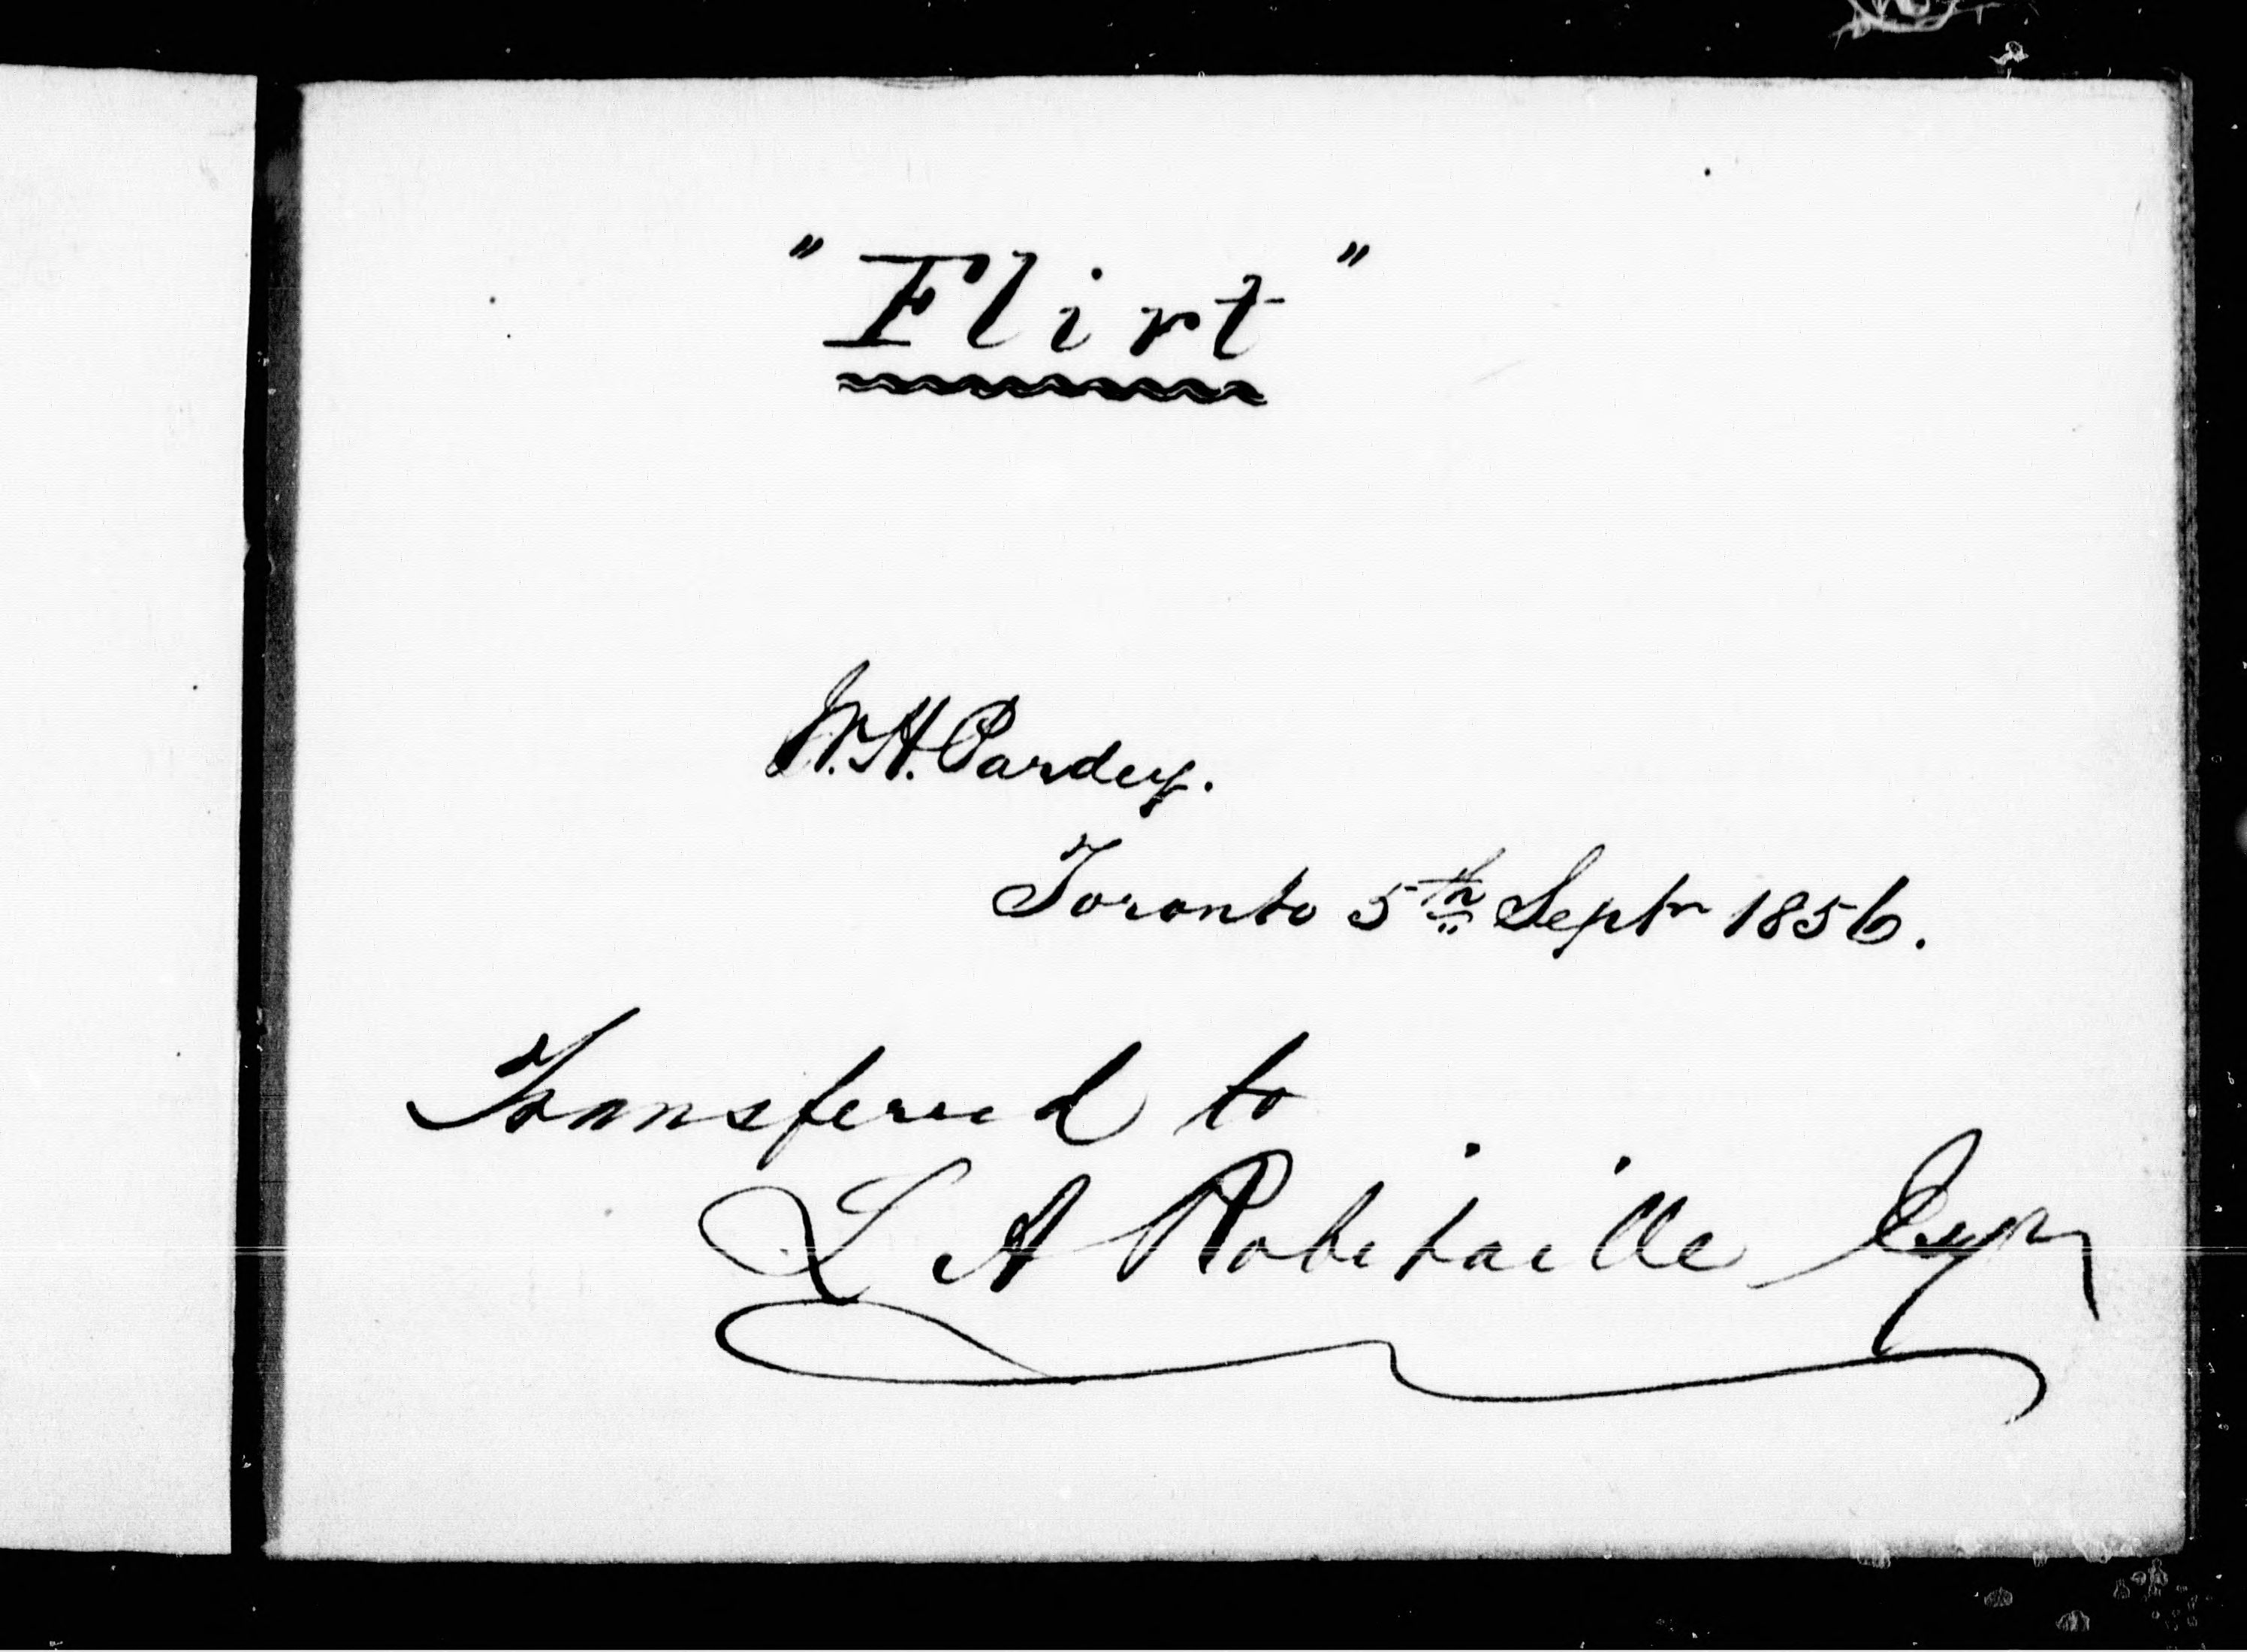 "Flirt"
W. H. Pardey.
Toronto 5th Septr 1856.
Transferred to
L A Robitaille Esqr